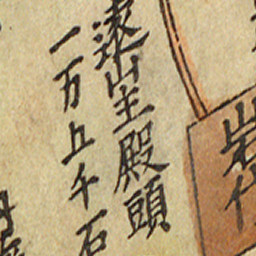 岩
遠山主殿頭
一万五千石